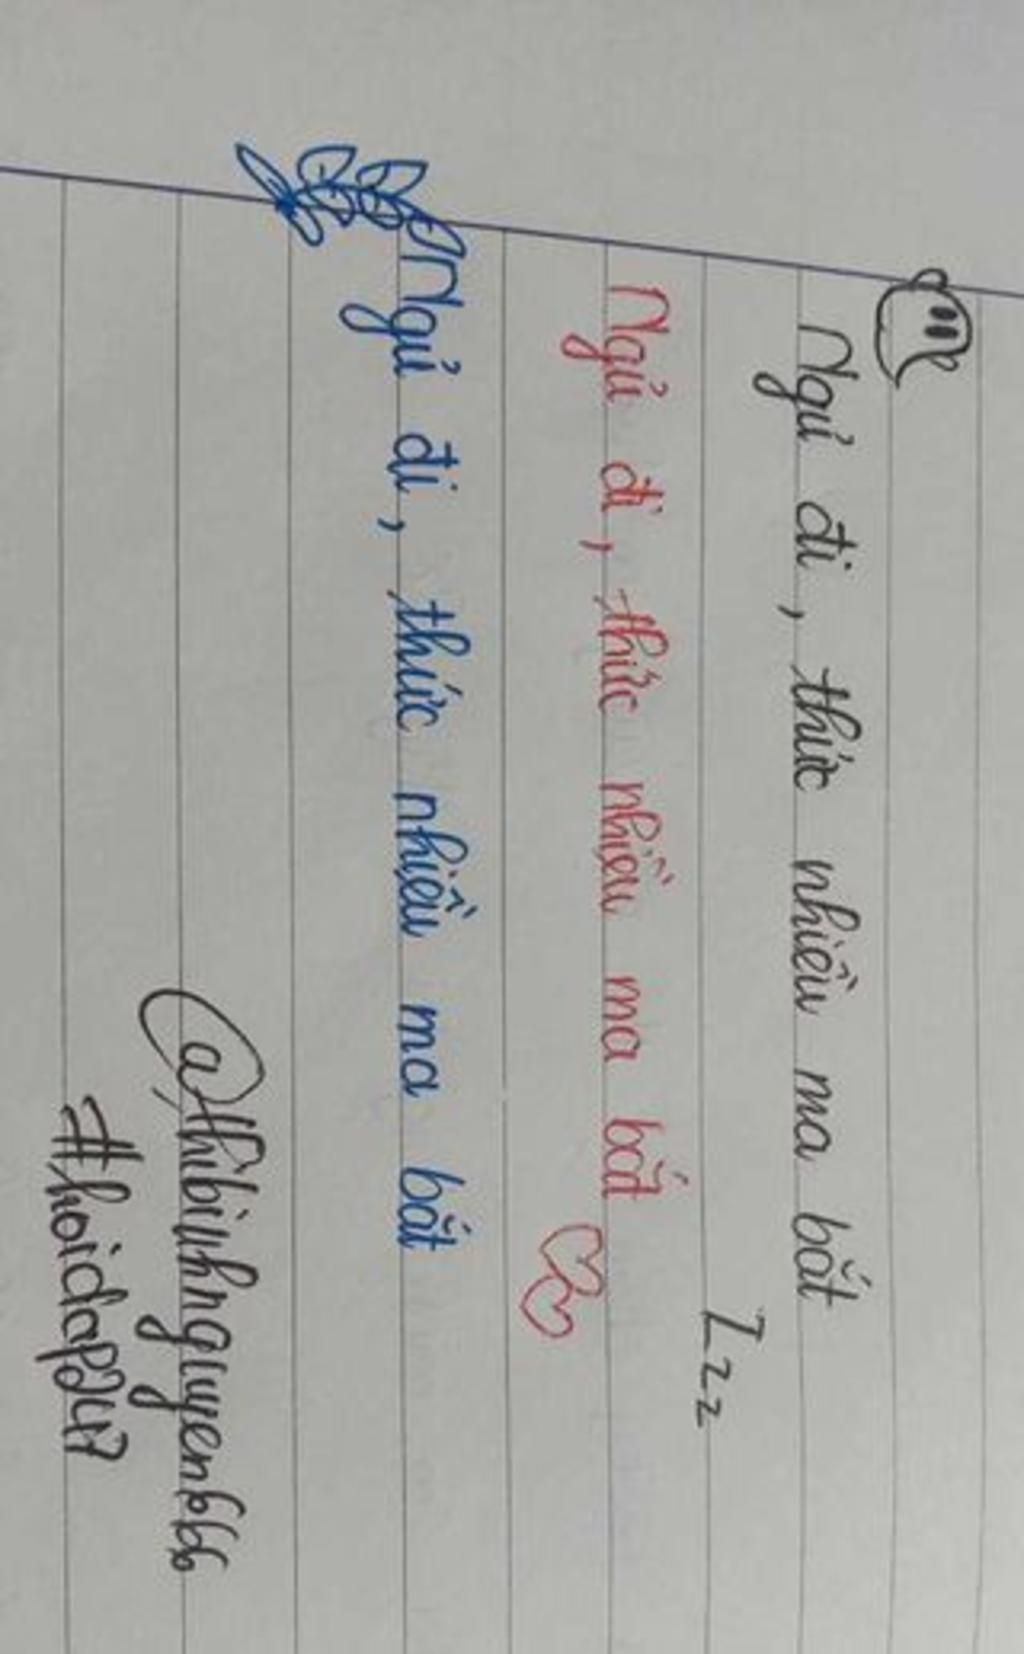 Ngủ đi, thức nhiều ma bắt
Zzz
Ngủ đi, thức nhiều ma bắt
Ngủ đi, thức nhiều ma bắt
@thibinhnguyen66
#hoidap247